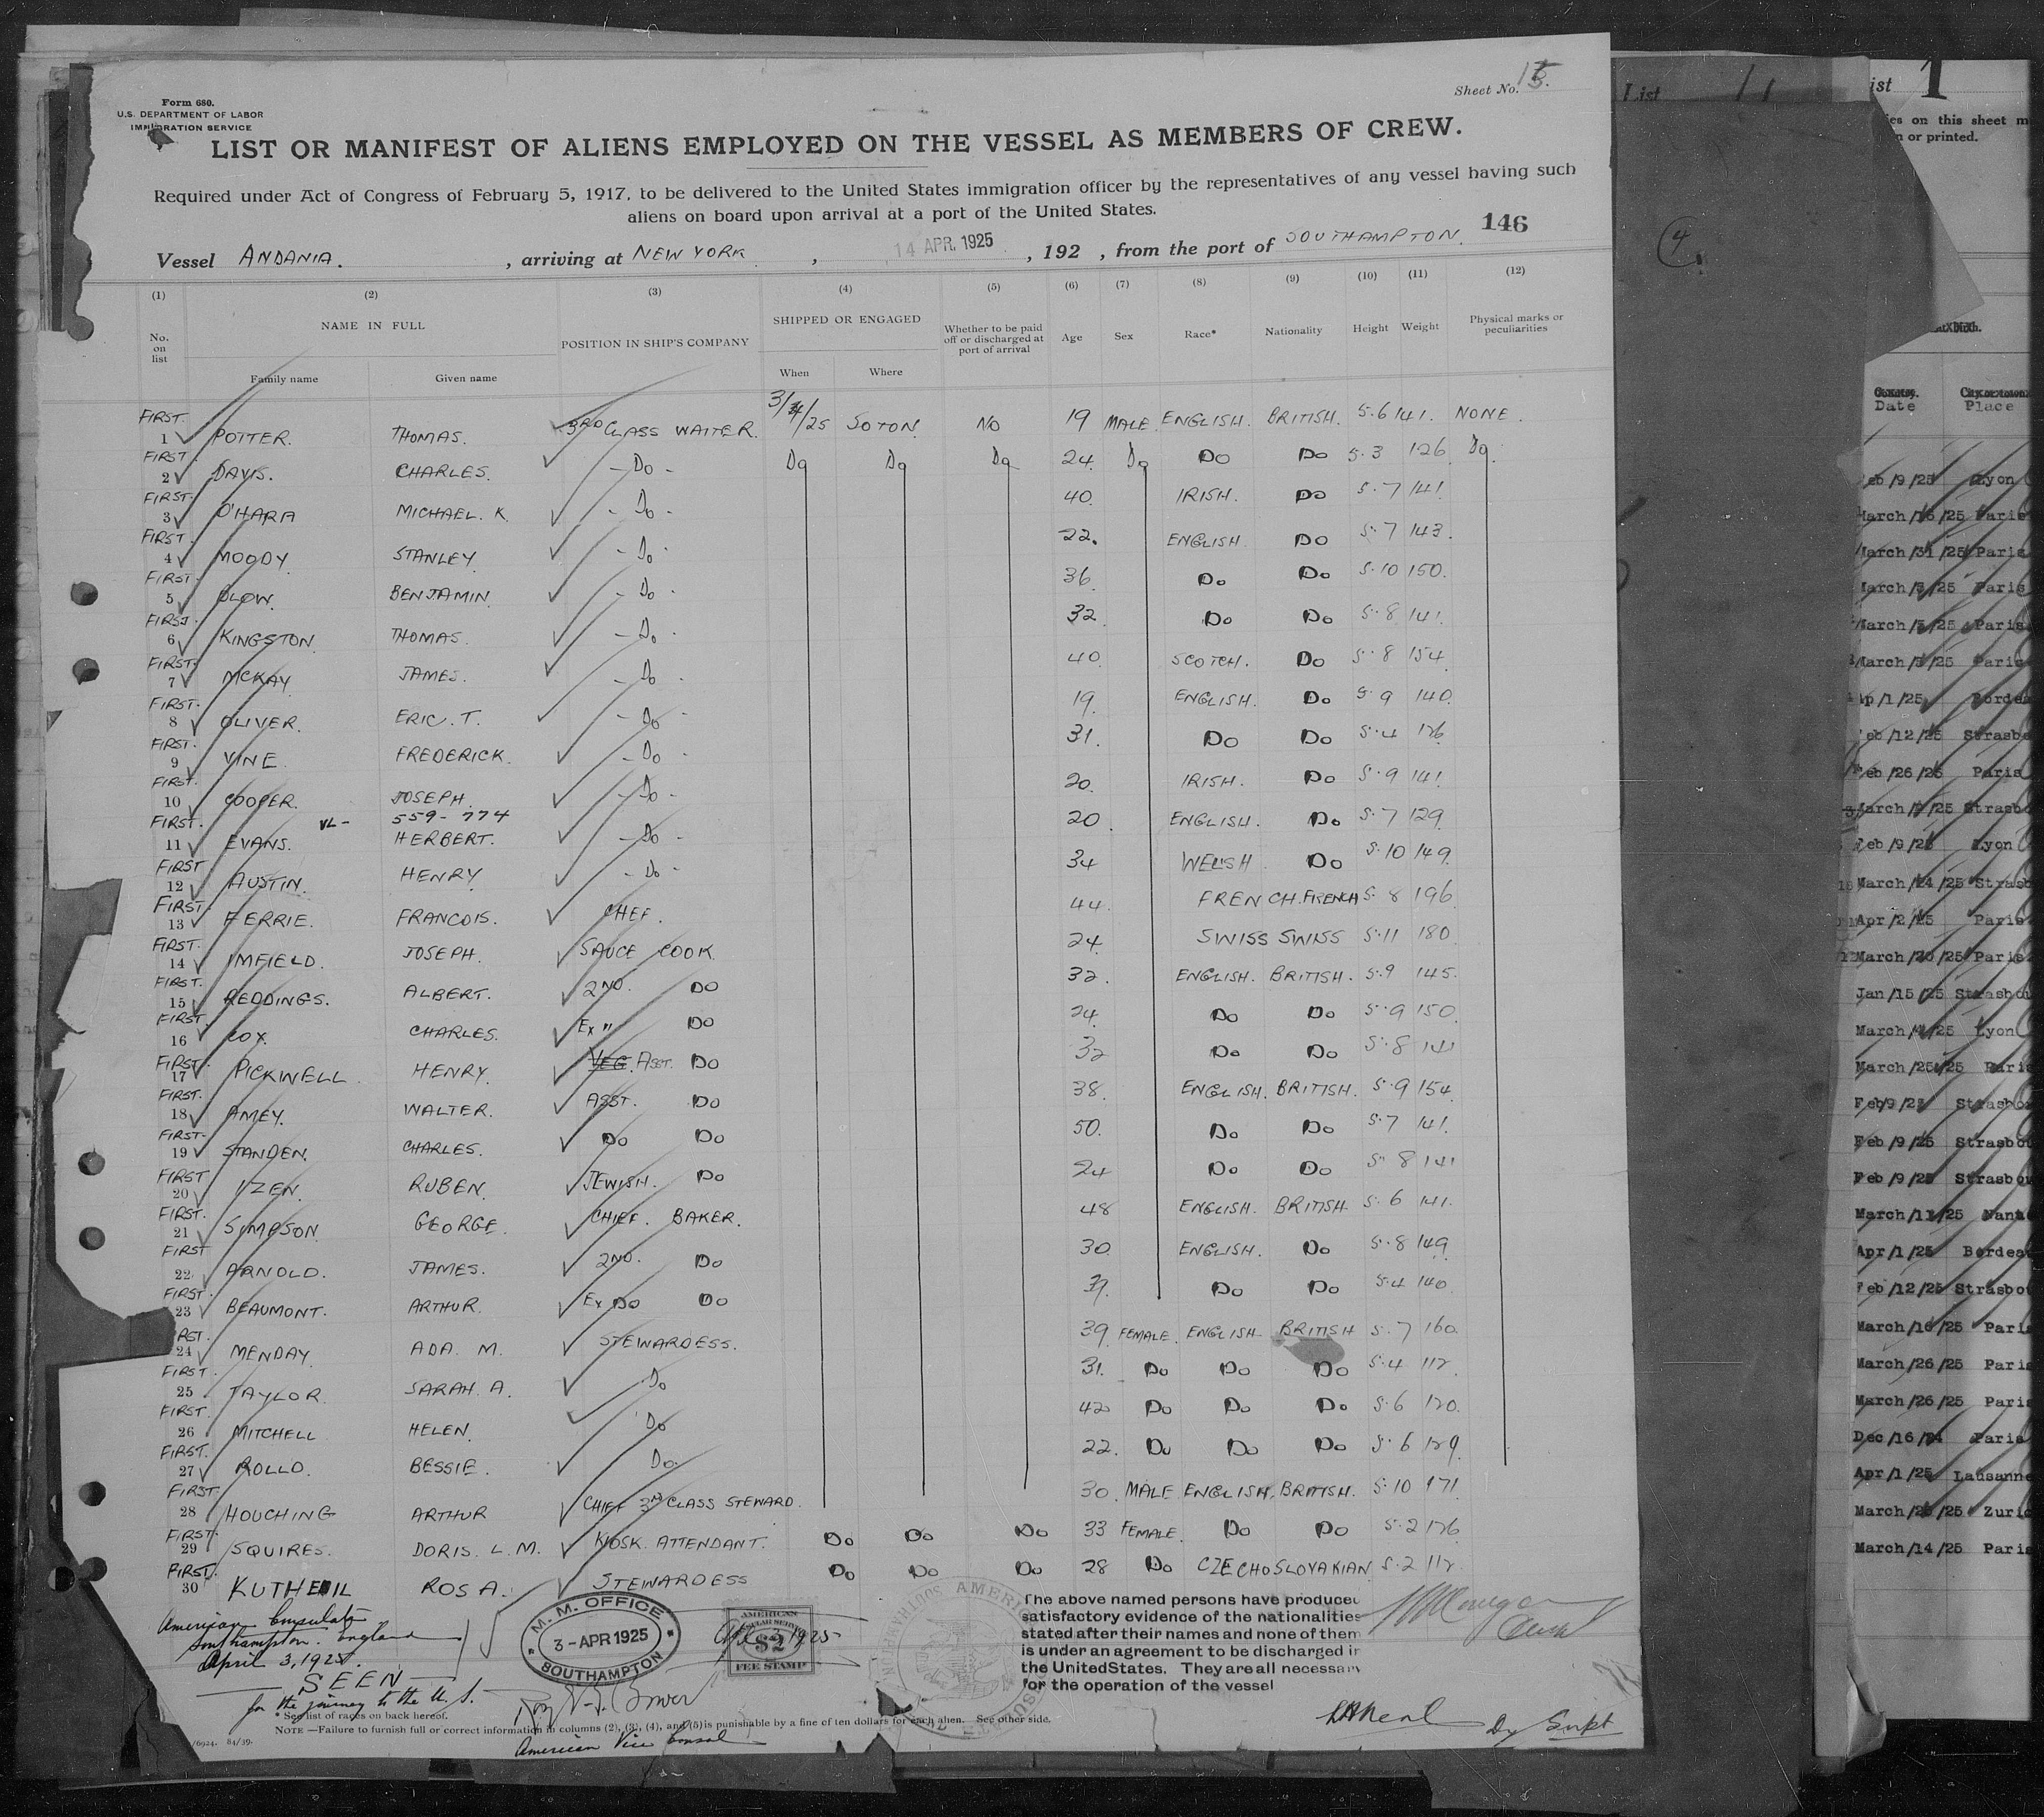 Form 680.
U.S. DEPARTMENT OF LABOR
IMMIGRATION SERVICE
Sheet No.
LIST OR MANIFEST OF ALIENS EMPLOYED ON THE VESSEL AS MEMBERS OF CREW.
Required under Act of Congress of February 5, 1917, to be delivered to the United States immigration officer by the representatives of any vessel having such
aliens on board upon arrival at a port of the United States.
146
Vessel ANDANIA. , arriving at NEW YORK , 14 APR. 1925 , 192 , from the port of SOUTHAMPTON.
(1) (2) (3) (4) (5) (6) (7) (8) (9) (10) (11) (12)
No. on list NAME IN FULL POSITION IN SHIP'S COMPANY SHIPPED OR ENGAGED Whether to be paid off or discharged at port of arrival Age Sex Race* Nationality Height Weight Physical marks or peculiarities
Family name Given name When Where
FIRST. 1 POTTER. THOMAS. 3RD CLASS WAITER. 3/4/25 SOTON. NO 19 MALE ENGLISH. BRITISH. 5.6 141. NONE.
FIRST. 2 DAVIS. CHARLES. - Do - Do Do Do 24. Do Do Do 5.3 126 Do.
FIRST. 3 O'HARA MICHAEL. K. - Do - 40. IRISH. Do 5.7 141.
FIRST. 4 MOODY STANLEY. - Do - 22. ENGLISH. Do 5.7 143.
FIRST. 5 BENJAMIN. - Do - 36. Do Do 5.10 150.
FIRST. 6 KINGSTON. THOMAS. - Do - 32 Do Do 5.8 141.
FIRST. 7 MCKAY. JAMES. - Do - 40. SCOTCH. Do 5.8 154
FIRST. 8 OLIVER. ERIC. T. - Do - 19. ENGLISH. Do 5.9 140.
FIRST. 9 VINE. FREDERICK. - Do - 31. Do Do 5.4 126
FIRST. 10 COOPER. JOSEPH. - Do - 20. IRISH. Do 5.9 141.
VL- 559-774
FIRST. 11 EVANS. HERBERT. - Do - 20. ENGLISH. Do 5.7 129.
FIRST 12 AUSTIN. HENRY - Do - 34 WELSH Do 5.10 149.
FIRST. 13 FERRIE. FRANCOIS. CHEF. 44. FRENCH. FRENCH 5.8 196
FIRST. 14 IMFIELD. JOSEPH. SAUCE COOK 24. SWISS SWISS 5.11 180
FIRST. 15 REDDINGS. ALBERT. 2ND. DO 32. ENGLISH. BRITISH. 5.9 145.
FIRST. 16 COX. CHARLES. Ex " DO 24. Do Do 5.9 150.
FIRST. 17 PICKWELL. HENRY. VEG. ASST. DO 32 Do Do 5.8 141
FIRST. 18 AMEY. WALTER. ASST. DO 38. ENGLISH. BRITISH. 5.9 154.
FIRST. 19 STANDEN. CHARLES. DO DO 50. Do Do 5.7 141.
FIRST 20 IZEN. RUBEN. JEWISH. DO 24 Do Do 5.8 141
FIRST. 21 SIMPSON GEORGE. CHIEF. BAKER. 48 ENGLISH. BRITISH. 5.6 141.
FIRST 22 ARNOLD. JAMES. 2ND. DO 30. ENGLISH. Do 5.8 149.
FIRST. 23 BEAUMONT. ARTHUR. Ex DO DO Do Do 5.4 140.
RST. 24 MENDAY. ADA. M. STEWARDESS. 39 FEMALE. ENGLISH BRITISH 5.7 160.
FIRST. 25 TAYLOR SARAH. A. Do 31. Do Do Do 5.4 112.
FIRST. 26 MITCHELL HELEN. Do 42 Do Do Do 5.6 120.
FIRST. 27 ROLLO. BESSIE. Do. 22. Do Do Do 5.6 129.
FIRST. 28 HOUCHING ARTHUR CHIEF 3RD CLASS STEWARD. 30. MALE ENGLISH. BRITISH. 5.10 171.
FIRST. 29 SQUIRES. DORIS. L.M. KIOSK. ATTENDANT. Do Do Do 33 FEMALE. Do Do 5.2 126
FIRST. 30 ROSA. STEWARDESS Do Do Do 28 Do CZECHOSLOVAKIAN 5.2 112.
American Consulate
Southampton. England
April 3, 1925.
SEEN
for the journey to the U.S.
M. M. OFFICE
3 - APR 1925
SOUTHAMPTON
AMERICAN
$2
FEE STAMP
American Vice Consul
The above named persons have produced
satisfactory evidence of the nationalities
stated after their names and none of them
is under an agreement to be discharged in
the United States. They are all necessary
for the operation of the vessel
Dy Supt
* See list of races on back hereof.
NOTE —Failure to furnish full or correct information in columns (2), (3), (4), and (5) is punishable by a fine of ten dollars for each alien. See other side.
List
(4)
ist 1
ies on this sheet m
n or printed.
Date Place
eb/9/25 Lyon
March/16/25 Paris
March/31/25 Paris
March/3/25 Paris
March/5/25 Paris
March/3/25 Paris
Ap/1/25 Bordea
Feb/12/25 Strasbo
Feb/26/25 Paris
March/9/25 Strasbo
Feb/9/25 Lyon
March/24/25 Strasb
Apr/2/25 Paris
March/20/25 Paris
Jan/15/25 Strasbou
March/4/25 Lyon
March/25/25 Paris
Feb/9/25 Strasbo
Feb/9/25 Strasbou
Feb/9/25 Strasbo
March/11/25 Nante
Apr/1/25 Bordea
Feb/12/25 Strasbou
March/16/25 Paris
March/26/25 Paris
March/26/25 Paris
Dec/16/24 Paris
Apr/1/25 Lausanne
March/25/25 Zuric
March/14/25 Paris